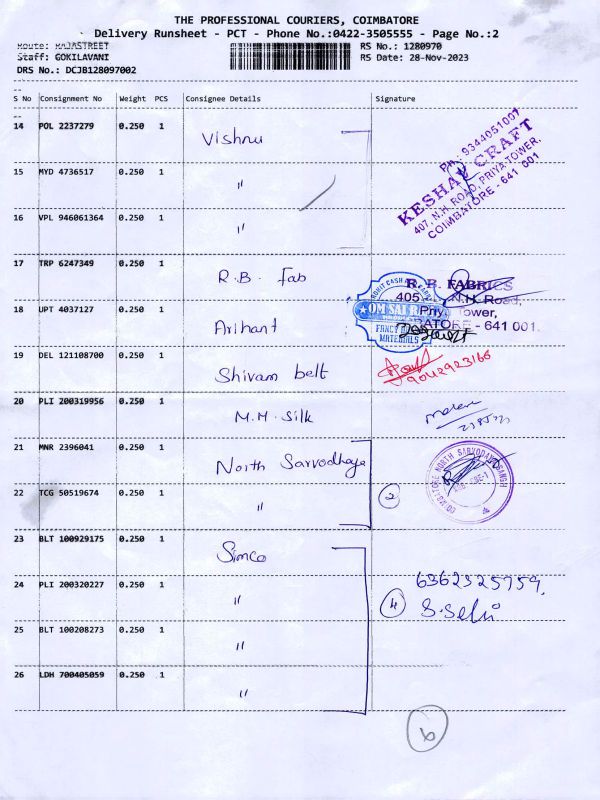 THE PROFESSIONAL COURIERS, COIMBATORE
Delivery Runsheet - PCT - Phone No.:0422-3505555 - Page No.:2
Route: RAJASTREET
RS No.: 1280970
Staff: GOKILAVANI
RS Date: 28-Nov-2023
DRS No.: DCJB128097002
S No Consignment No Weight PCS Consignee Details Signature
14 POL 2237279 0.250 1 Vishnu
15 MYD 4736517 0.250 1 "
16 VPL 946061364 0.250 1 "
Ph.: 9344051007
KESHAV CRAFT
407, N.H. ROAD, PRIYA TOWER,
COIMBATORE - 641 001
17 TRP 6247349 0.250 1 R.B. Fab
R. B. FABRICS
405, N.H. Road,
Priya Tower,
BATORE - 641 001.
18 UPT 4037127 0.250 1 Arihant
OM SAI RA
FANCY
MATERIALS
19 DEL 121108700 0.250 1 Shivam belt
9042923166
20 PLI 200319956 0.250 1 M.M. Silk
21 MNR 2396041 0.250 1 North Sarvodhaya
COIMBATORE NORTH SARVODAYA SANGH
22 TCG 50519674 0.250 1 "
2
23 BLT 100929175 0.250 1 Simco
24 PLI 200320227 0.250 1 "
6362325759.
4 S.Selvi
25 BLT 100208273 0.250 1 "
26 LDH 700405059 0.250 1 "
6